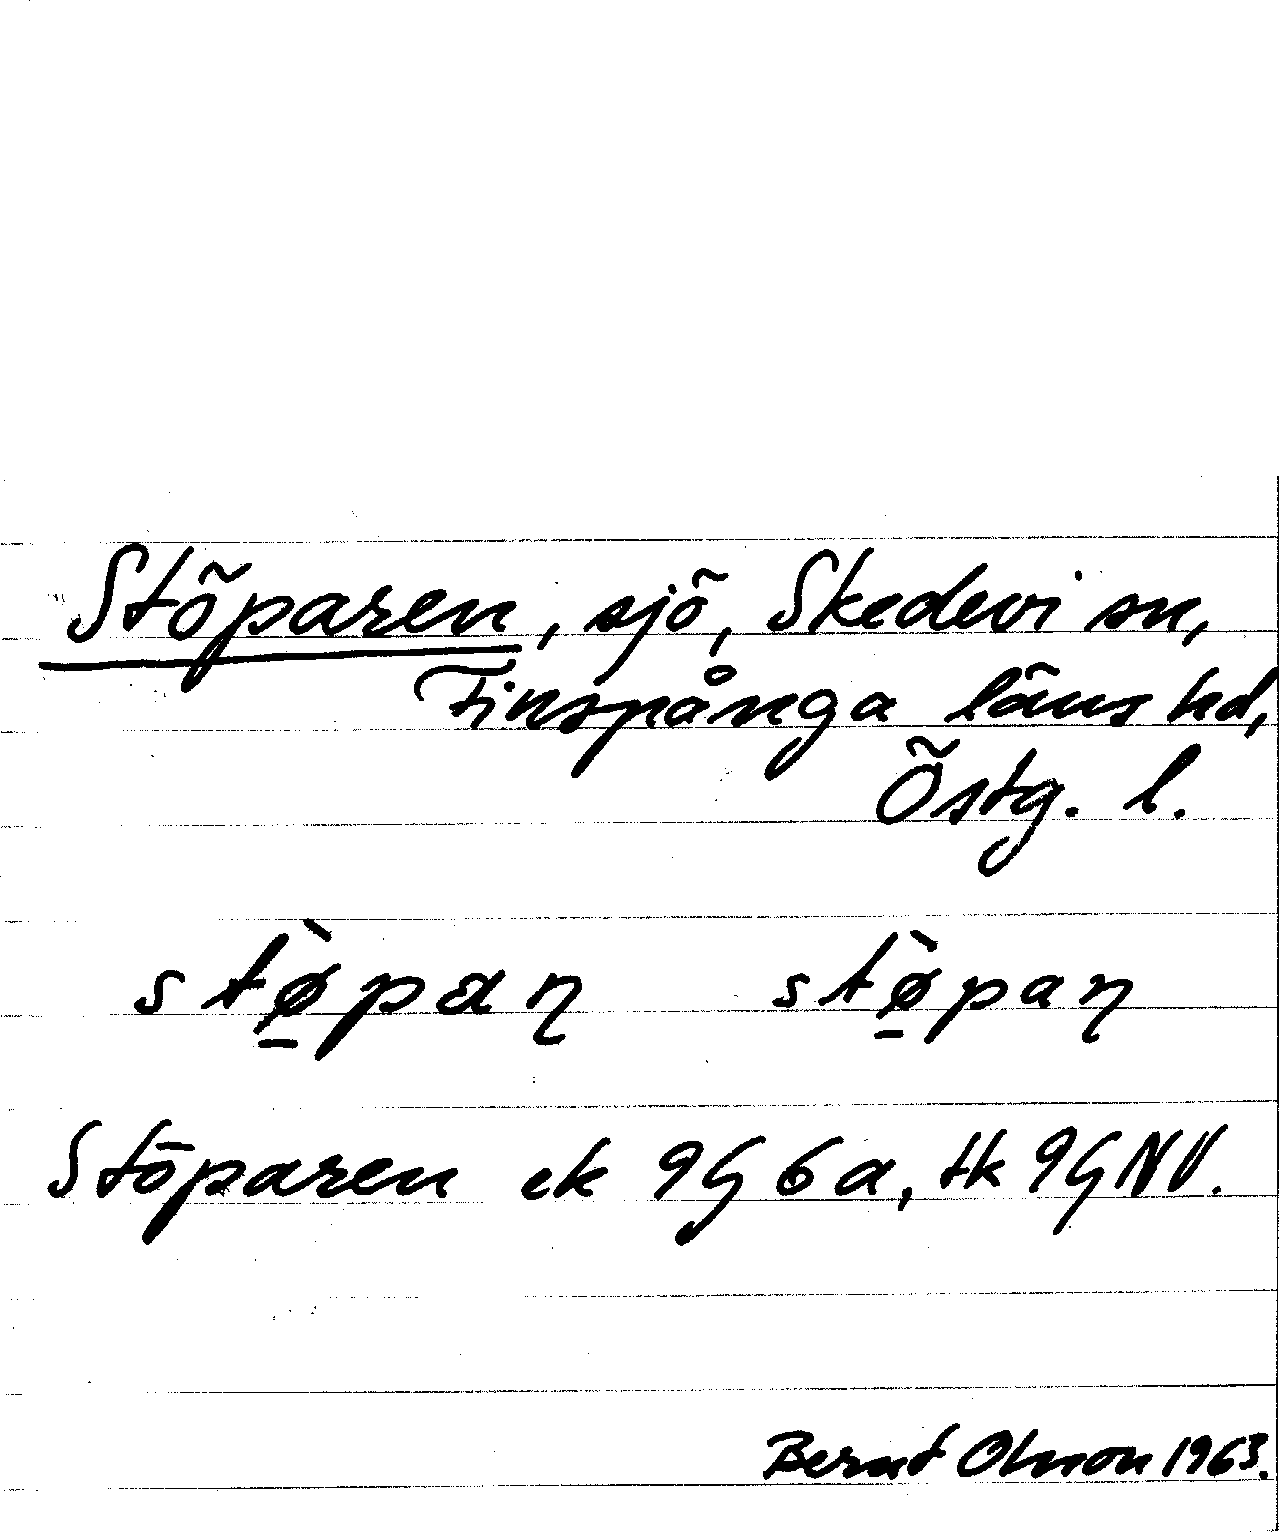 Stöparen, sjö, Skedevi sn,
Finspånga läns hd,
Östg. l.
stø̠̀paɳ stø̠̀paɳ
Stöparen ek 9G 6a, tk 9G NV.
Bernt Olsson 1963.